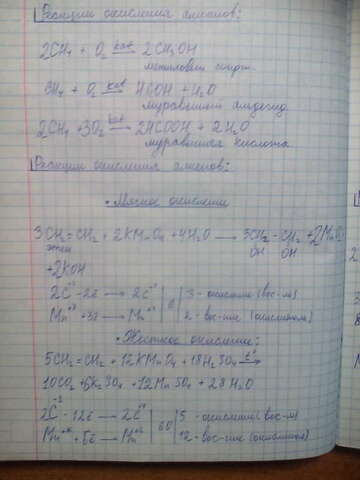 Реакции окисления алканов:
2CH₄ + O₂ kat→ 2CH₃OH
метиловый спирт
CH₄ + O₂ kat→ HCOH + H₂O
муравьиный альдегид
2CH₄ + 3O₂ kat→ 2HCOOH + 2H₂O
муравьиная кислота
Реакции окисления алкенов:
• Мягкое окисление
3CH₂=CH₂ + 2KMnO₄ + 4H₂O → 3CH₂ - CH₂ + 2MnO₂
этен OH OH
+2KOH
2C - 2ē → 2C⁻¹ | 6 | 3 - окисление (вос-ль)
Mn⁺⁷ + 3ē → Mn⁺⁴ | 2 - вос-ние (окислитель)
• Жесткое окисление:
5CH₂=CH₂ + 12KMnO₄ + 18H₂SO₄ t°→
10CO₂ + 6K₂SO₄ + 12MnSO₄ + 28H₂O
2C⁻² - 12ē → 2C⁺⁴ | 60 | 5 - окисление (вос-ль)
Mn⁺⁷ + 5ē → Mn⁺² | 12 - вос-ние (окислитель)